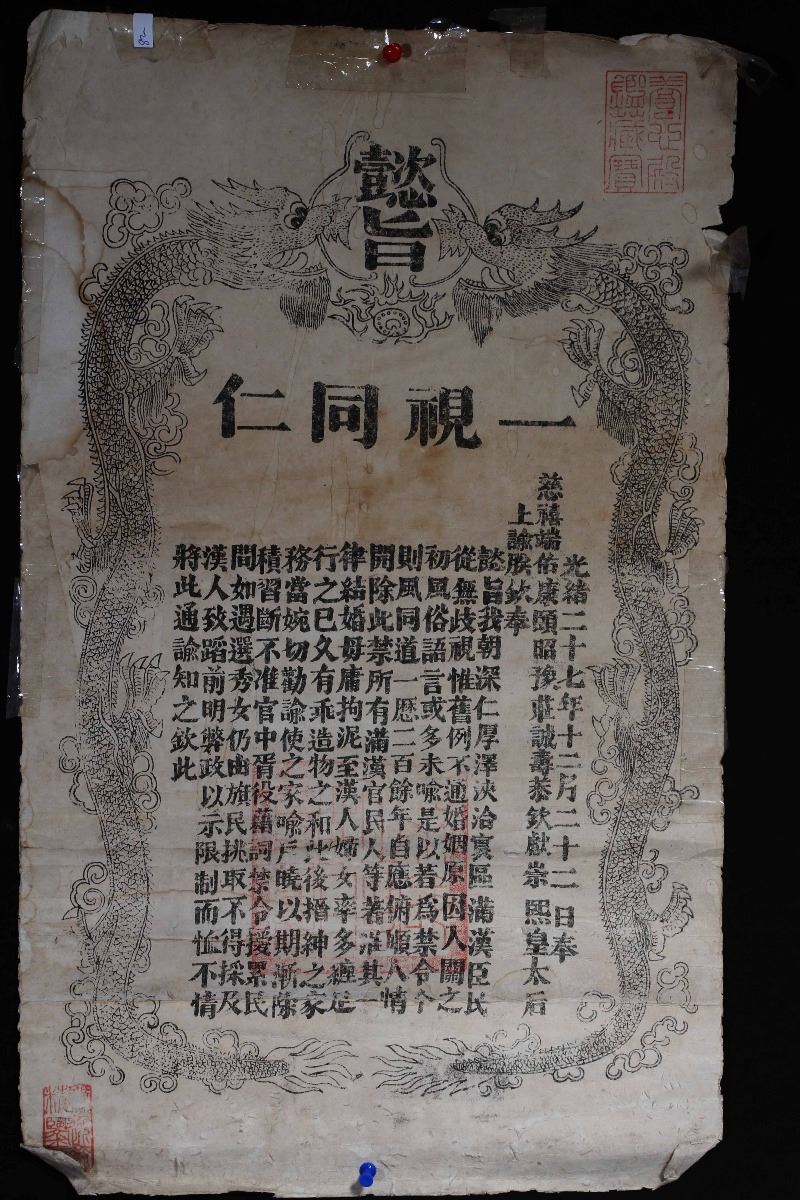 懿旨
一視同仁
光緒二十七年十二月二十二日奉
慈禧端佑康頤昭豫莊誠壽恭欽獻崇熙皇太后
上諭朕欽奉
懿旨我朝深仁厚澤浹洽寰區滿漢臣民
從無歧視惟舊例不通婚姻原因人關之
初風俗語言或多未喻是以若爲禁令今
則風同道一歷二百餘年自應俯順人情
開除此禁所有滿漢官民人等著准其一
律結婚毋庸拘泥至漢人婦女率多纏足
行之已久有乖造物之和此後搢紳之家
務當婉切勸諭使之家喻戶曉以期漸除
積習斷不准官中胥役藉詞禁令援累民
間如遇選秀女仍由旗民挑取不得採及
漢人致蹈前明弊政以示限制而恤不情
將此通諭知之欽此